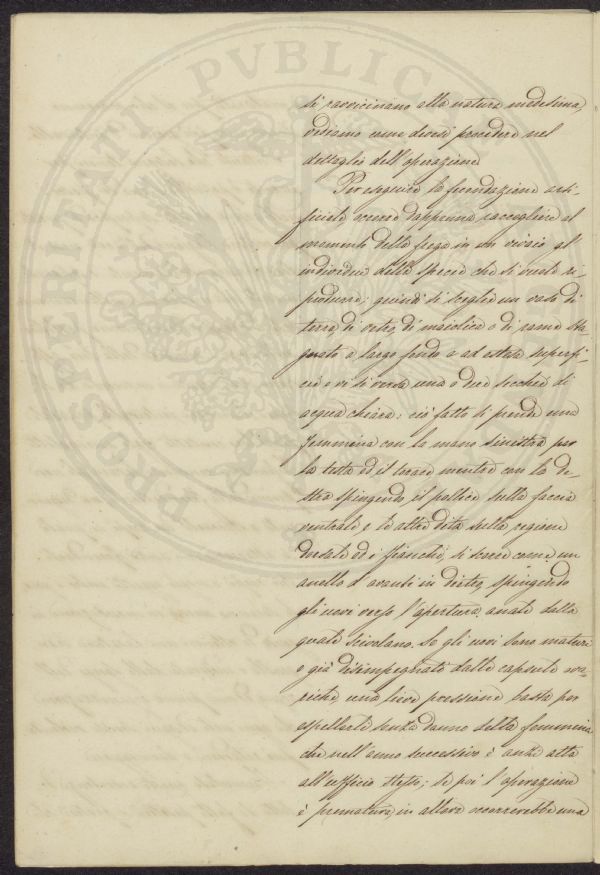 si ravvicinano alla natura medesima,
vediamo come devesi procedere nel
dettaglio dell'operazione
Per eseguire la fecondazione arti-
ficiale, vuolsi dapprima raccogliere al
momento della frega in un vivaio gl'
individui della specie che si vuole ri-
produrre; quindi si sceglie un vaso di
terra, di vetro, di maiolica o di rame sta
gnato a largo fondo e ad estesa superfi-
cie e vi si versa una o due secchie di
acqua chiara: ciò fatto si prende una
femmina con la mano sinistra per
la testa ed il torace mentre con la de-
stra spingendo il pollice sulla faccia
ventrale, e le altre dita sulla regione
dorsale ed i fianchi, si scorre come un
anello d'avanti in dietro, spingendo
gli uovi verso l'apertura anale dalla
quale scivolano. Se gli uovi sono maturi
e già disimpegnati dalle capsule ova-
riche una lieve pressione basta per
espellerli senza danno della femmina
che nell'anno successivo è anzi atta
all'ufficio stesso; se poi l'operazione
è prematura, in allora occorrerebbe una
PROSPERITATI PVBLICAE